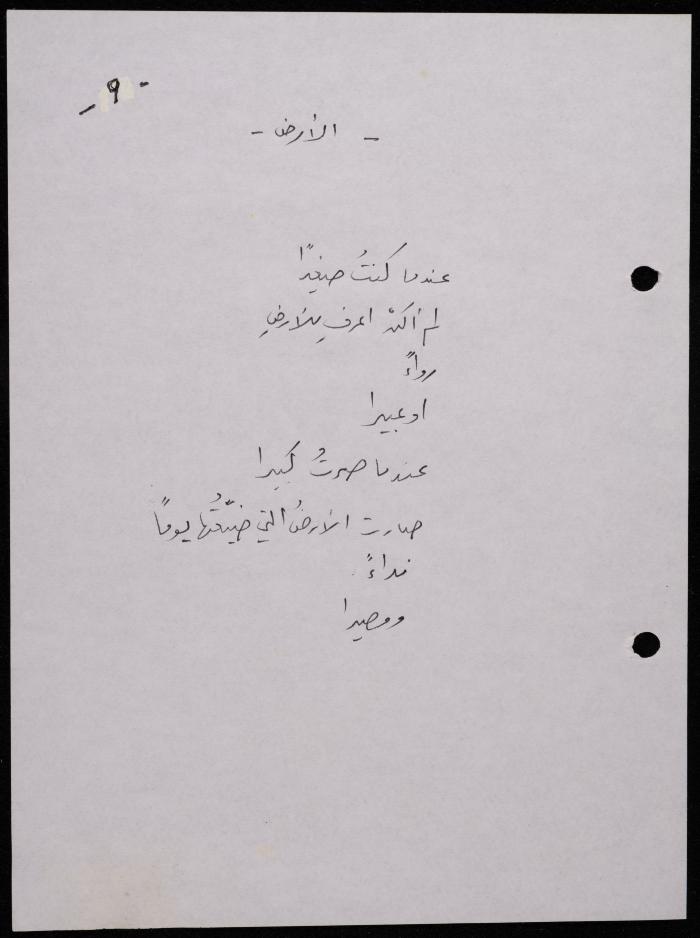 - ٩ -
- الأرض -
عندما كنتُ صغيرًا
لم أكنْ اعرف للأرضِ
رواءً
او عبيرا
عندما صرتُ كبيرا
صارت الارضُ التي ضيّعتُها يومًا
نداءً
ومصيرا